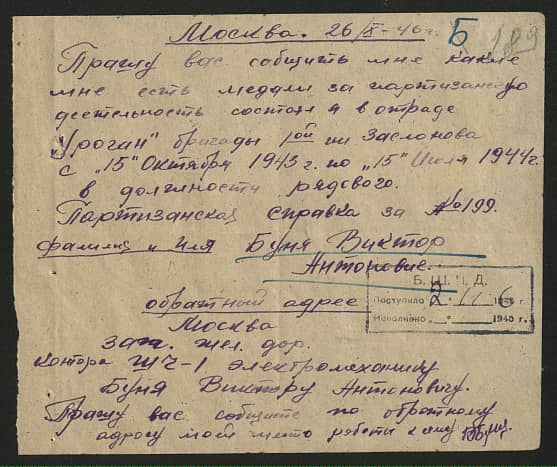 Москва. 26/X-46 г.
Б
189
Прашу вас собщить мне какие
мне есть медали за партизанскую
деетельность состоял я в отраде
"Уроган" бригады 1ой им Заслонова
с "15" Октября 1943 г. по "15" Июля 1944 г.
в должности рядового.
Партизанская справка за №199.
фамилия и Имя Буня Виктор
Антонович.
Б. Ш. П. Д.
Поступило 2 11 1946 г.
Исполнено 1940 г.
обратный адрес
Москва
зап. жел. дор.
контора ШЧ-1 электромеханику
Буня Виктору Антоновичу.
Прашу вас собщите по обратному
адресу моей место работы к ому